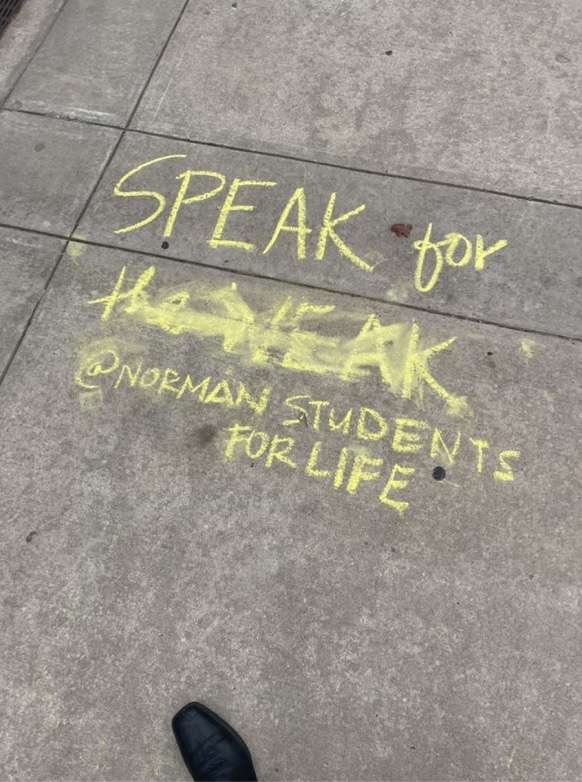 SPEAK for
the WEAK
@NORMAN STUDENTS
FOR LIFE